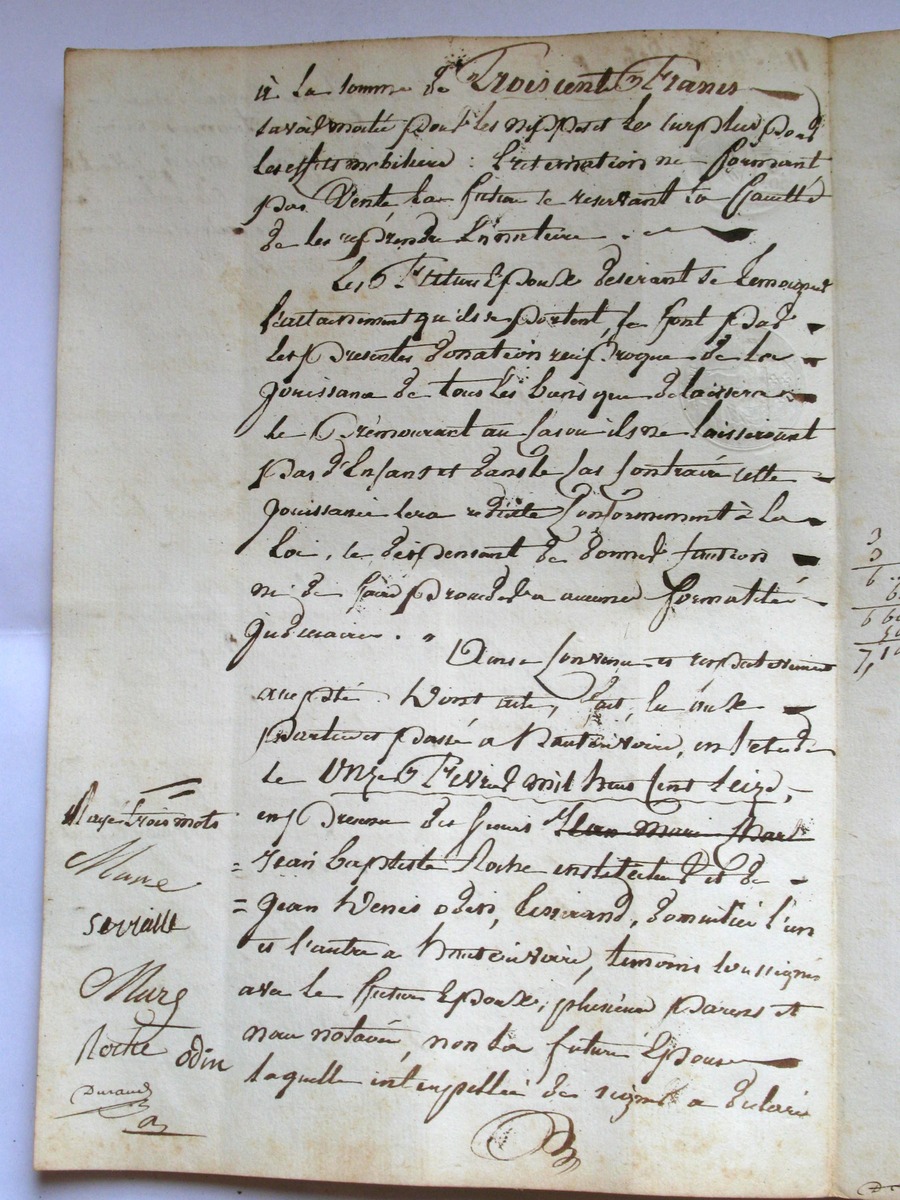 à la somme de Trois cents Francs
savoir moitié pour les nippes et le surplus pour
les effets mobiliers : l'estimation ne formant
pas Vente la future se reservant la faculté
de les reprendre En nature.
Les Futurs Epoux desirant se temoigner
l'attachement qu'ils se portent, se font par
les presentes donation reciproque de la
jouissance de tous les biens que delaissera
le Prémourant au Cas ou ils ne laisseroient
pas d'Enfans et dans le Cas Contraire cette
jouissance sera reduite Conformement à la
Loi, se dispensant de donner Caution
ni de faire proceder a aucunes formalités
judiciaires.
Ainsi Convenu et respectivement
accepté Dont acte, fait, lu aux
parties et passé a Hauterivoire, en l'etude
le Onze Fevrier mil huit Cent Seize,
en presence des sieurs Jean Marie
Jean baptiste Roche instituteur et de
jean Denis odin, tisserand, domiciliés l'un
et l'autre a hauterivoire, temoins soussignés
avec le futur Epoux, plusieurs parens et
nous notaire, non la future Epouse
laquelle interpellée de signer a declaré
Rayé trois mots
Marc
serraille
Marc
Roche odin
Durand
3
3
6
6
7,1